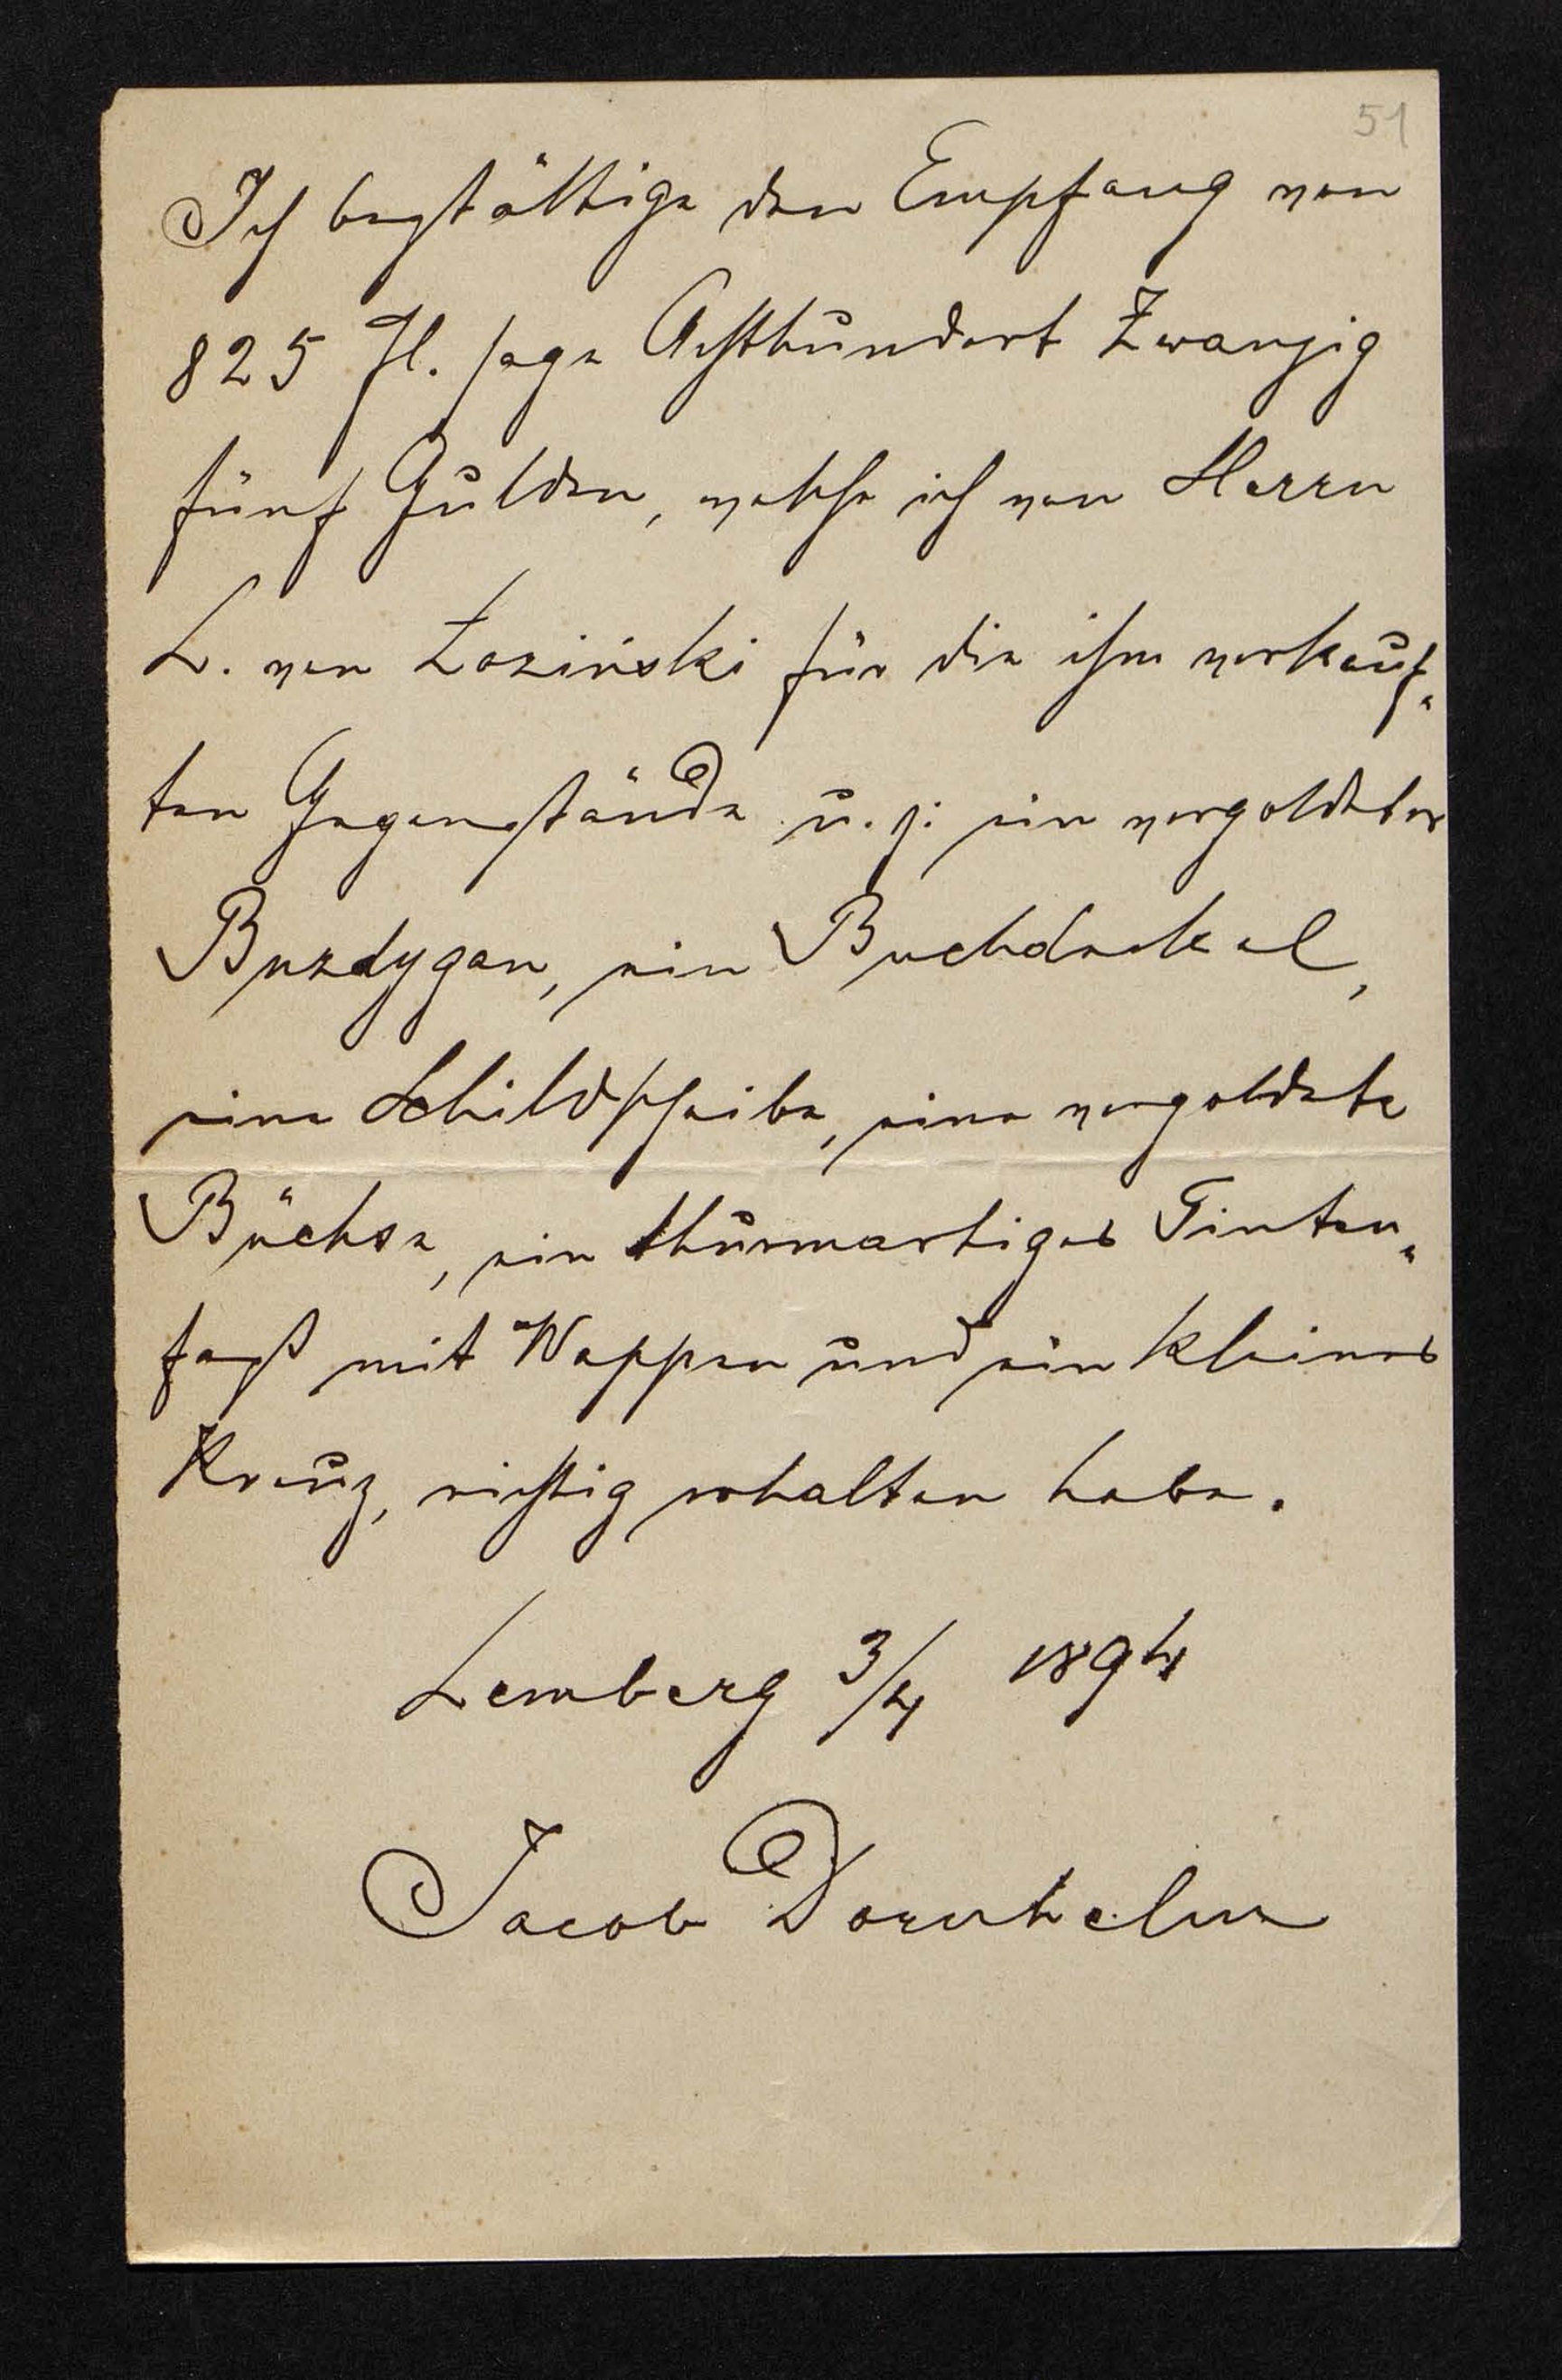 51
Ich bestättige den Empfang von
825 fl. sage Achthundert Zwanzig
fünf Gulden, welche ich von Herrn
L. von Łoziński für die ihm verkauf-
ten Gegenstände u. z: ein vergoldeter
Buzdygan, ein Buchdeckel,
eine Schildscheibe, eine vergoldete
Büchse, ein thurmartiges Tinten-
faß mit Wappen und ein kleines
Kreuz, richtig erhalten habe.
Lemberg 3/4 1894
Jacob Dornhelm